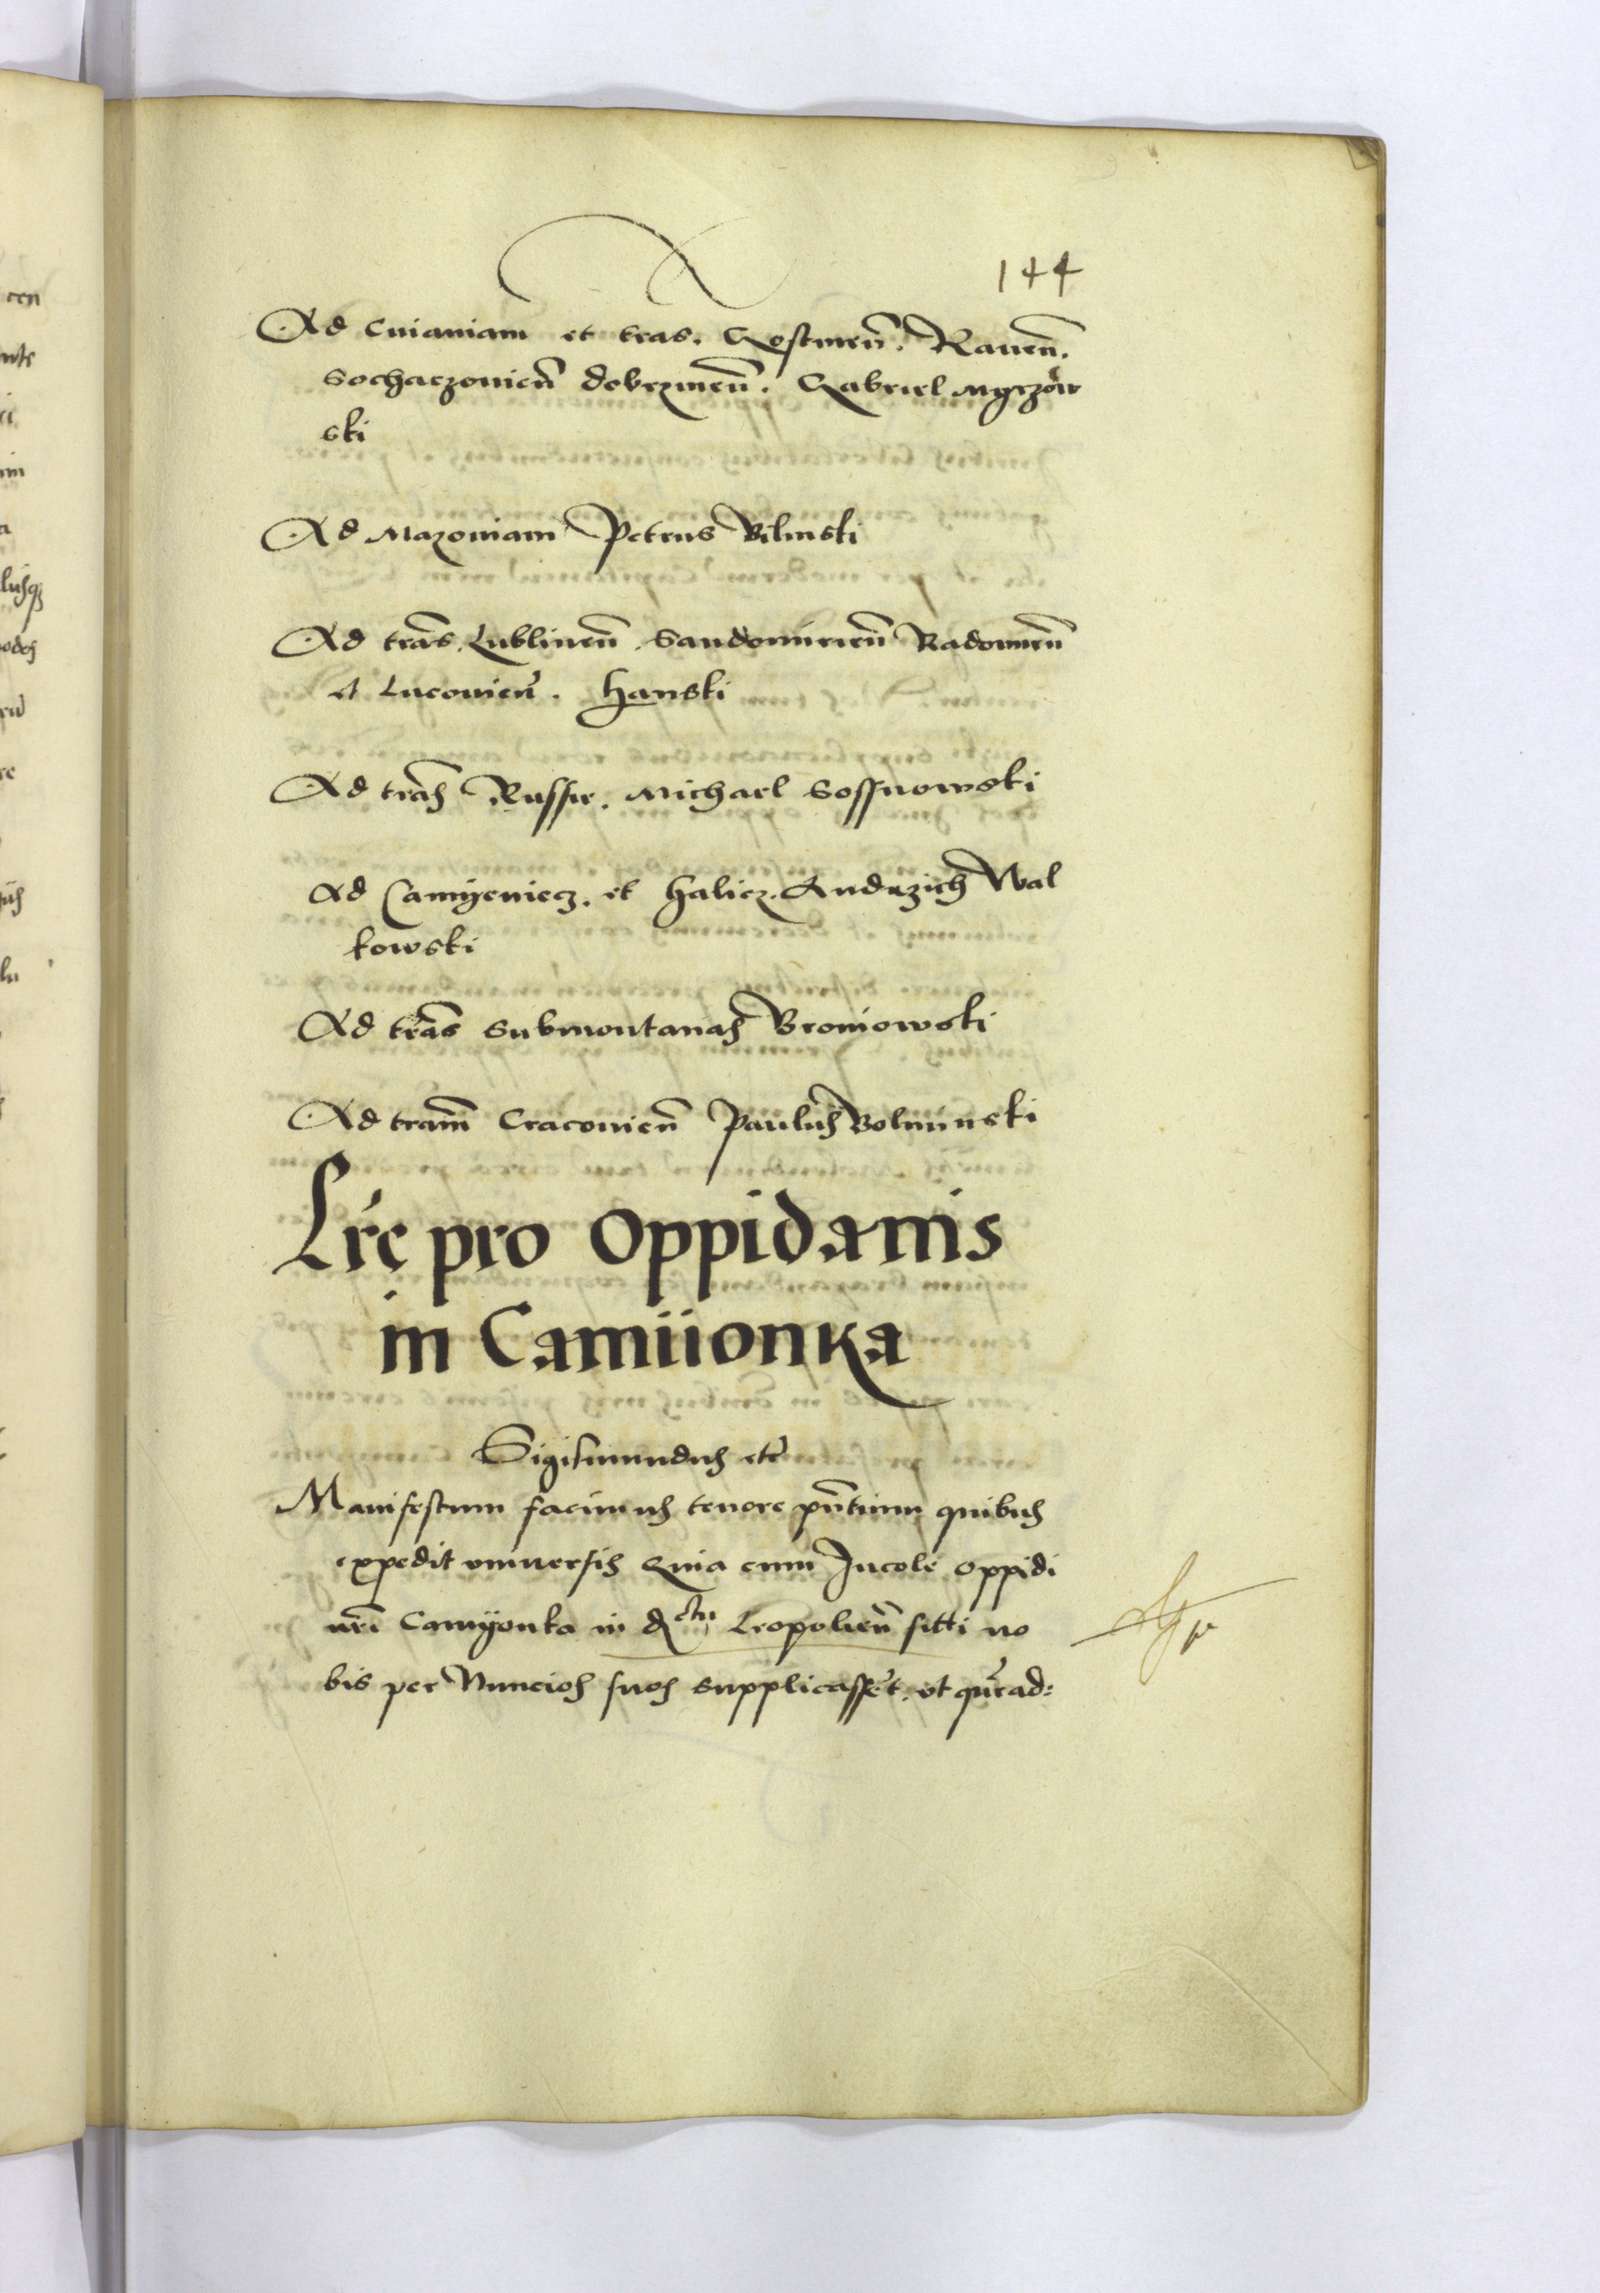 144
Ad Cuianiam et tras. Gostinen̄. Rauen̄.
Sochaczouien̄ dobrzinen̄. Gabriel
ski
Ad Mazouiam Petrus Bilinski
Ad tras̄ Lublinen̄ Sandomirien̄ Radomien̄
et Lucouien̄. Hanski
Ad tras̄ Russie. Michael Sossnowski
Ad Camyeniecz. et Halicz. Andrzich Wal
kowski
Ad tras̄ Submontanas Broniowski
Ad tram̄ Cracouien̄ Paulus Bolminski
Lr̄e pro Oppidanis
in Camiionka
Sigismundus etc̄
Manifestum facimus tenore pn̄tium quibus
expedit vniuersis Quia cum Incole oppidi
nr̄i Camyonka in Leopolien̄ sitti no
bis per Nuncios suos supplicassēt. vt